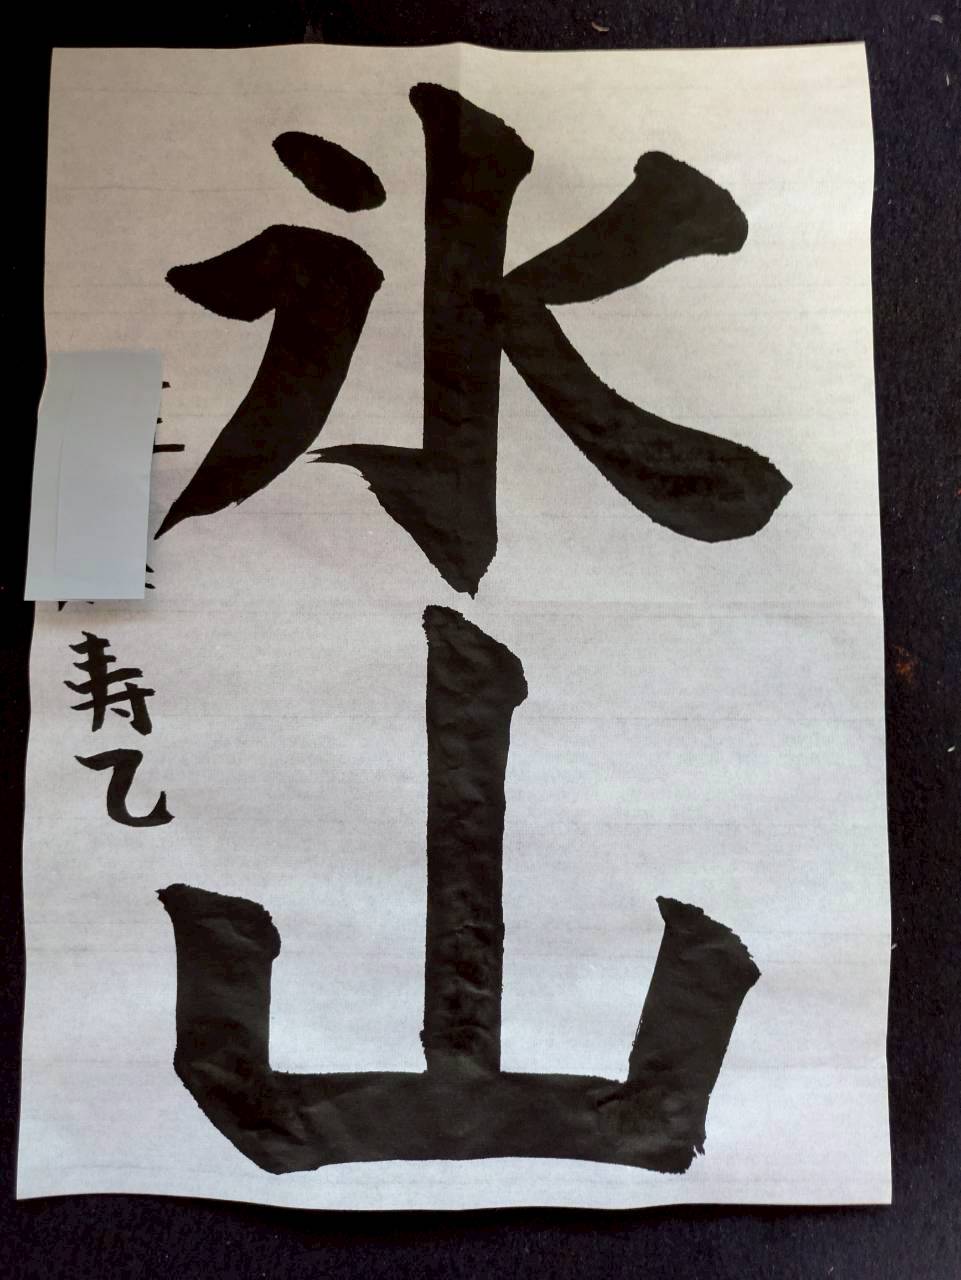 氷山
寿乙